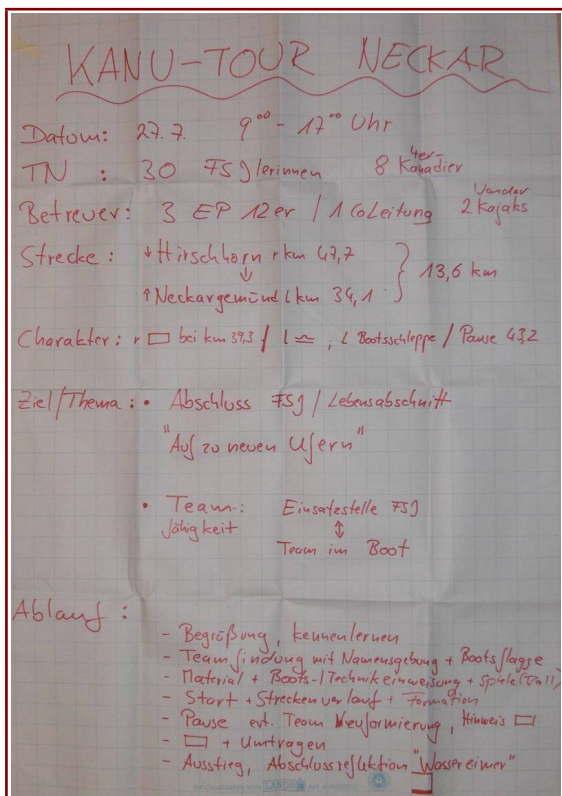 KANU-TOUR NECKAR
Datum: 27.7. 9⁰⁰ - 17⁰⁰ Uhr
TN : 30 FSJlerinnen 8 4er-Kanadier
Betreuer: 3 EP 12er / 1 CoLeitung 2 Kajaks
Strecke : ↓ Hirschhorn r km 47,7
↓ } 13,6 km
↑ Neckargemünd l km 34,1
Charakter: r ▭ bei km 39,3 / l ≃ ; L Bootsschleppe / Pause 43,2
Ziel/Thema : • Abschluss FSJ / Lebensabschnitt
"Auf zu neuen Ufern"
• Team-: Einsatzstelle FSJ
fähigkeit ↕
Team im Boot
Ablauf :
- Begrüßung, kennenlernen
- Teamfindung mit Namensgebung + Bootsflagge
- Material + Boots-/Technikeinweisung + Spiele
- Start + Streckenverlauf + Formation
- Pause evt. Team Neuformierung, Hinweis ▭
- ▭ + Umtragen
- Ausstieg, Abschlussreflektion "Wassereimer"